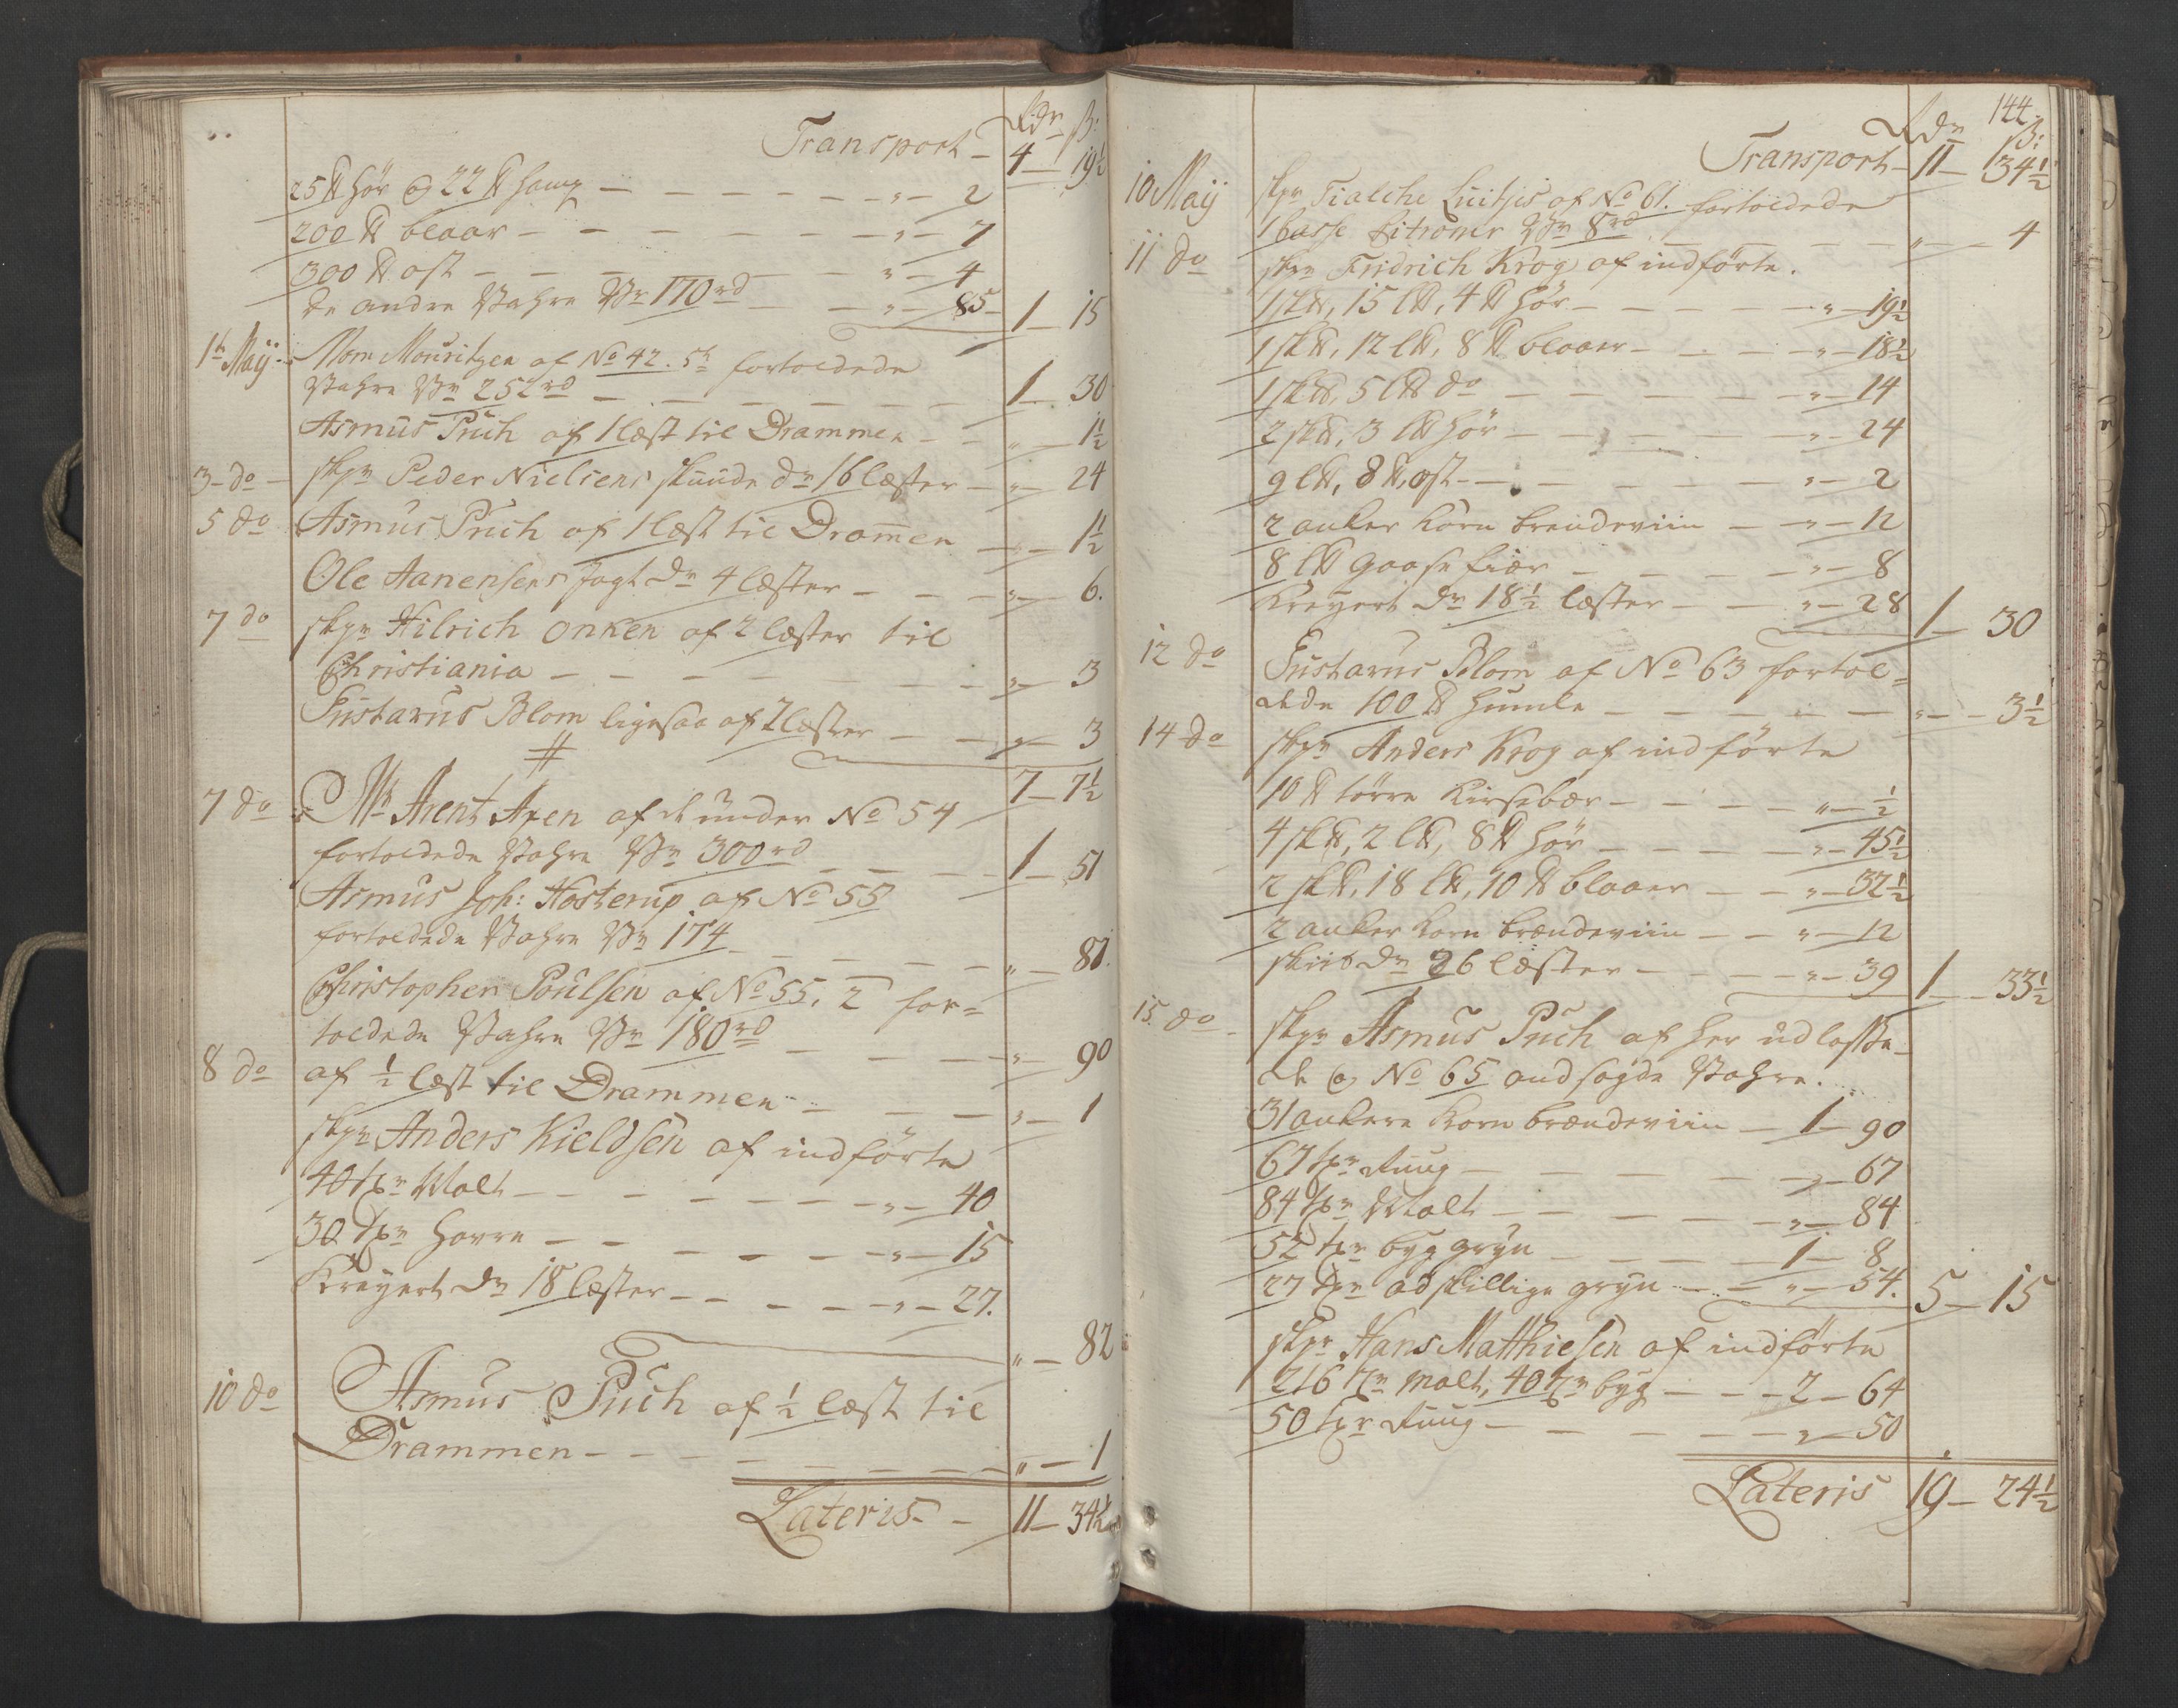 Rdr ß:
Transport - 4 - 19½
25 ℔ hør og 22 ℔ hamp - - - " - 2
200 ℔ blaar - - - " - 7
300 ℔ ost - - - " - 4
de andre Vahre Vr 170 rd - " - 85 - 1 - 15
1te Maij - Mom Mouritzen af No 42. 5te fortoldede
Vahre Vr 252 rd - - - 1 - 30
Asmus Puch af 1 læst til Drammen - - " - 1½
3 - do - skpr Peder Nielsens skuude dr 16 læster - " - 24
5 do Asmus Puch af 1 læst til Dramen - " - 1½
Ole Aanensens Jagt dr 4 læster - - - " - 6.
7 do skpr Hilrich Onken af 2 læster til
Christiania - - - " - 3
Gustavus Blom ligesaa af 2 læster - - " - 3
7 - 7½
7 do Mr Arent Axen af de under No 54
fortoldede Vahre Vr 300 rd - - - 1 - 51
Asmus Joh: Hosterup af No 55
fortoldede Vahre Vr 174 - - - " - 87
Christopher Poulsen af No 55. 2 for=
toldede Vahre Vr 180 rd - - - " - 90
8 do af ½ læst til Drammen - - - " - 1
skpr Anders Kieldsen af indførte
40 tr Malt - - - " - 40
30 tr Havre - - - " - 15
Kreyert dr 18 læster - - - " - 27.
" - 82
10 do Asmus Puch af ½ læst til
Drammen - - - " - 1
Lateris - - 11 - 34½
144
Rdr ß:
Transport - 11 - 34½
10 Maij skpr Tialche Luitjes af No 61. fortoldede
1 kasse Citroner Vr 8 rd - - - " - 4
11 do skpr Fridrich Krog af indførte.
1 sk℔, 15 l℔, 4 ℔ hør - - - " - 19½
1 sk℔, 12 l℔, 8 ℔ blaaer - - - " - 18½
1 sk℔, 5 l℔ do - - - " - 14
2 sk℔, 3 l℔ hør - - - " - 24
9 l℔, 8 ℔, ost - - - " - 2
2 anker Korn brendeviin - - " - 12
8 l℔ gaase fiær - - - " - 8
Kreyert dr 18½ læster - - " - 28 1 - 30
12 do Gustavus Blom af No 63 fortol=
dede 100 ℔ humle - - - " - 3½
14 do skpr Anders Krog af indførte
10 ℔ tørre kirsebær - - - " - ½
4 sk℔, 2 l℔, 8 ℔ hør - - - " - 45½
2 sk℔, 18 l℔, 10 ℔ blaaer - - " - 32½
2 anker Korn brændeviin - - " - 12
skiib dr 26 læster - - - " - 39 1 - 33½
15. do - skpr Asmus Puch af her udlosse-
de og No 65 andsagde Vahre.
31 ankere Korn brændeviin - 1 - 90
67 tr Ruug - - - " - 67
84 tr Malt - - - " - 84
52 tr byg gryn - - - 1 - 8
27 tr adskillige gryn - - " - 54. 5 - 15
skpr Hans Matthiesen af indførte
216 tr malt, 40 tr byg - - - 2 - 64
50 tr Ruug - - - " - 50
Lateris 19 - 24½